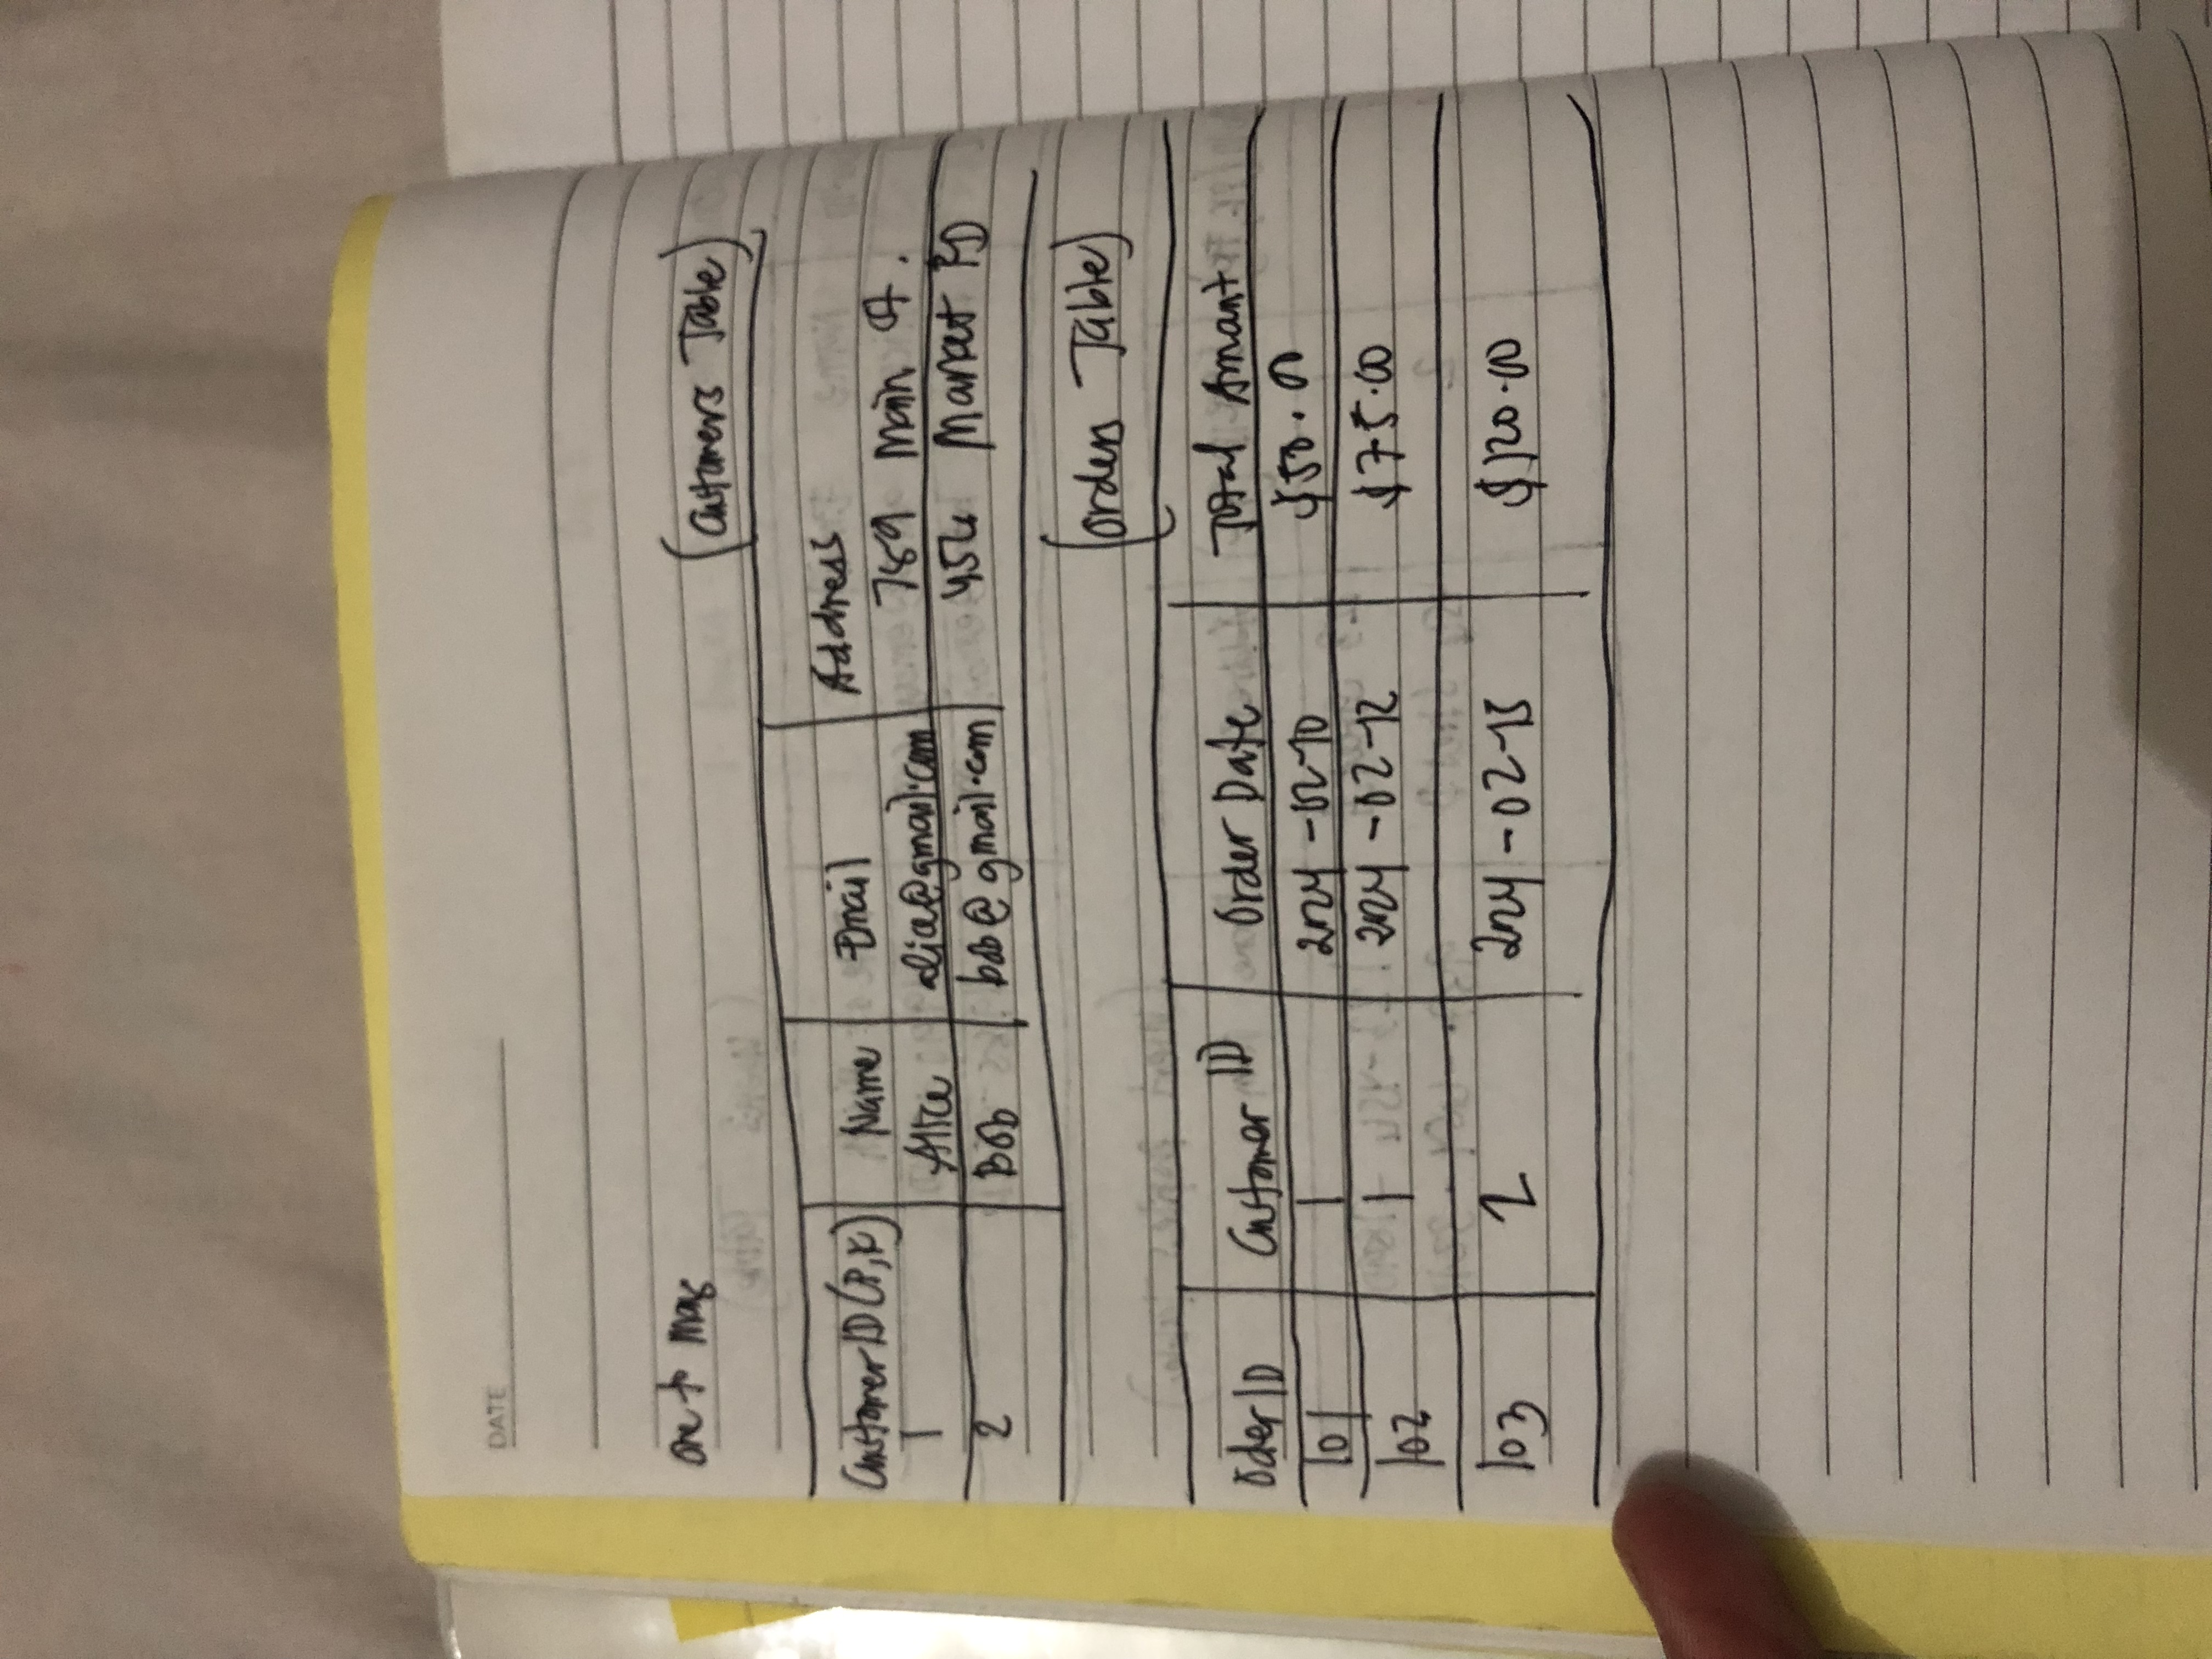 DATE
one to many
(Customers Table)
Customer ID (P,K) Name Email Address
1 Alice alice@gmail.com 789 Main
2 Bob bob@gmail.com 456 Market RD
(Orders Table)
Oder ID Customer ID Order Date Total Amant
101 1 2024-02-10 $50.00
102 1 2024-02-12 $75.00
103 2 2024-02-15 $120.00